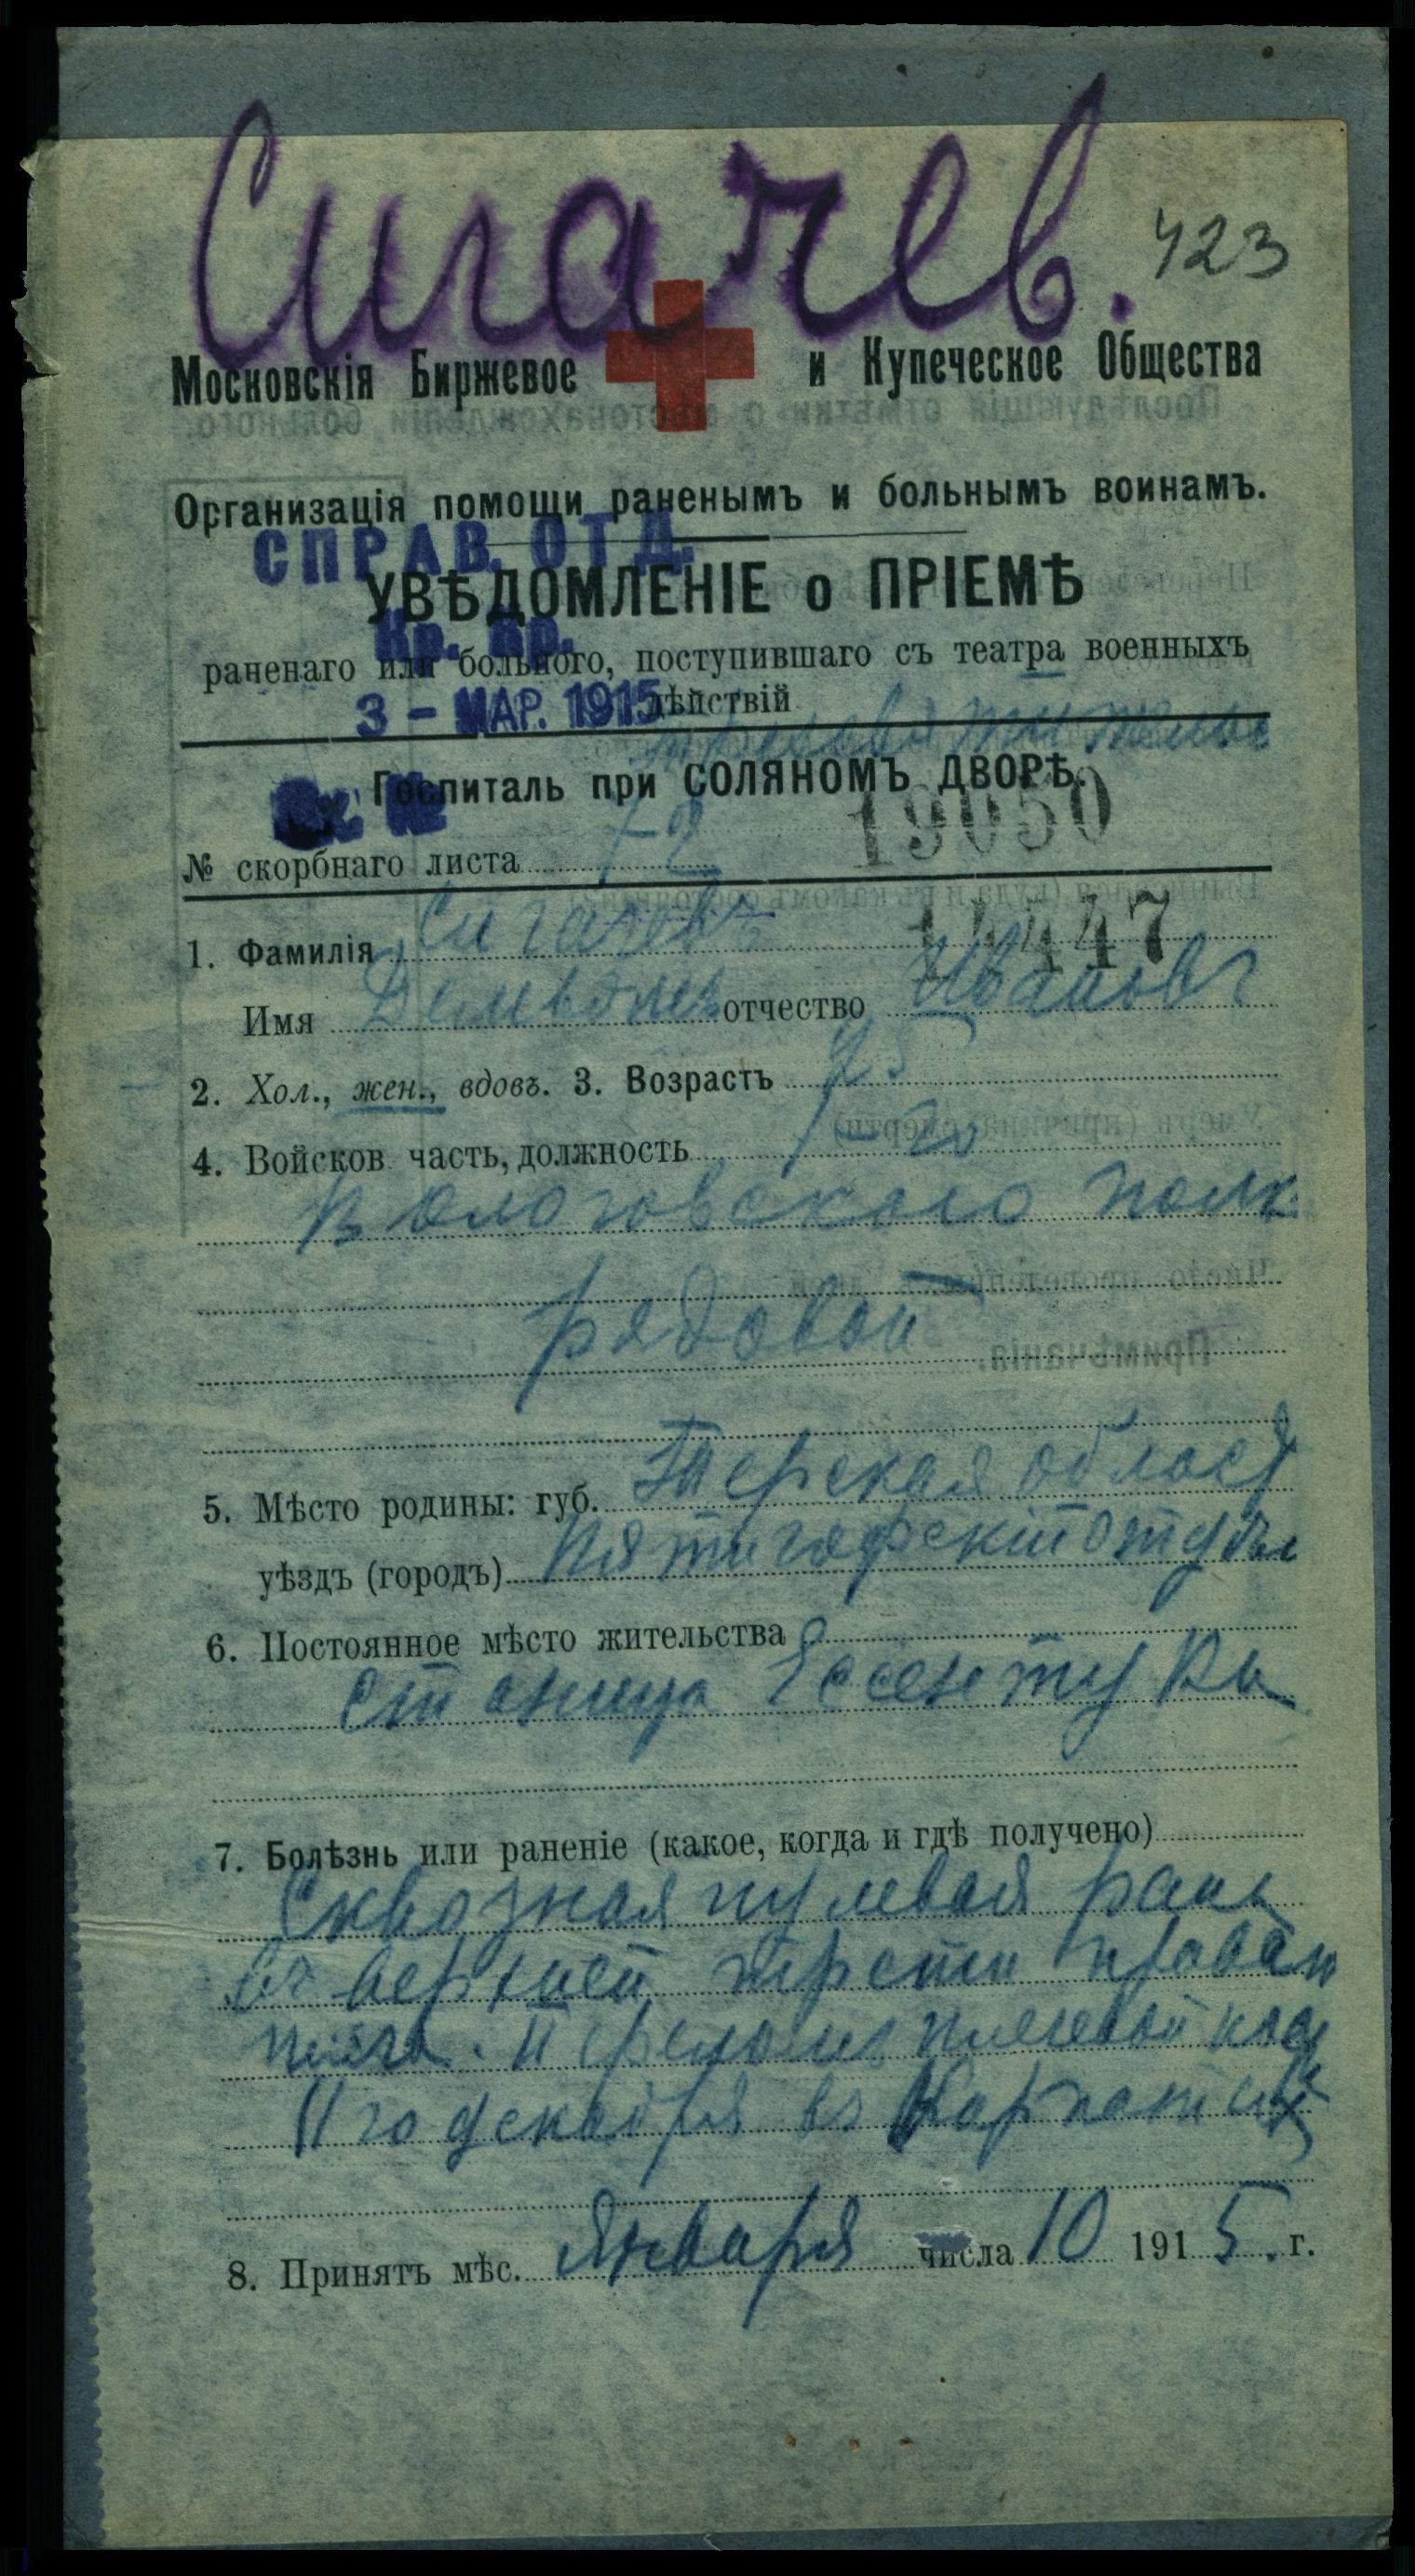 Сигачев.
423
Московскія Биржевое и Купеческое Общества
Организація помощи раненымъ и больнымъ воинамъ.
СПРАВ. ОТД.
УВѢДОМЛЕНІЕ о ПРІЕМѢ
Кр. Кр.
раненаго или больного, поступившаго съ театра военныхъ
дѣйствій
3 - МАР. 1915
Госпиталь при СОЛЯНОМЪ ДВОРѢ.
19050
№ скорбнаго листа 72
14447
1. Фамилія Сигачевъ
Имя отчество Ивановъ
2. Хол., жен., вдовъ. 3. Возрастъ
4. Войсков. часть, должность
полк.
рядовой
5. Мѣсто родины: губ. Терская област
уѣздъ (городъ) Пятигорскій отдѣл
6. Постоянное мѣсто жительства
станица Ессентуки
7. Болѣзнь или раненіе (какое, когда и гдѣ получено)
Сквозная пулевая рана
въ верхней трети правой
Переломъ плечевой кос
11го декабря въ Карпатах
8. Принятъ мѣс. Января числа 10 1915. г.